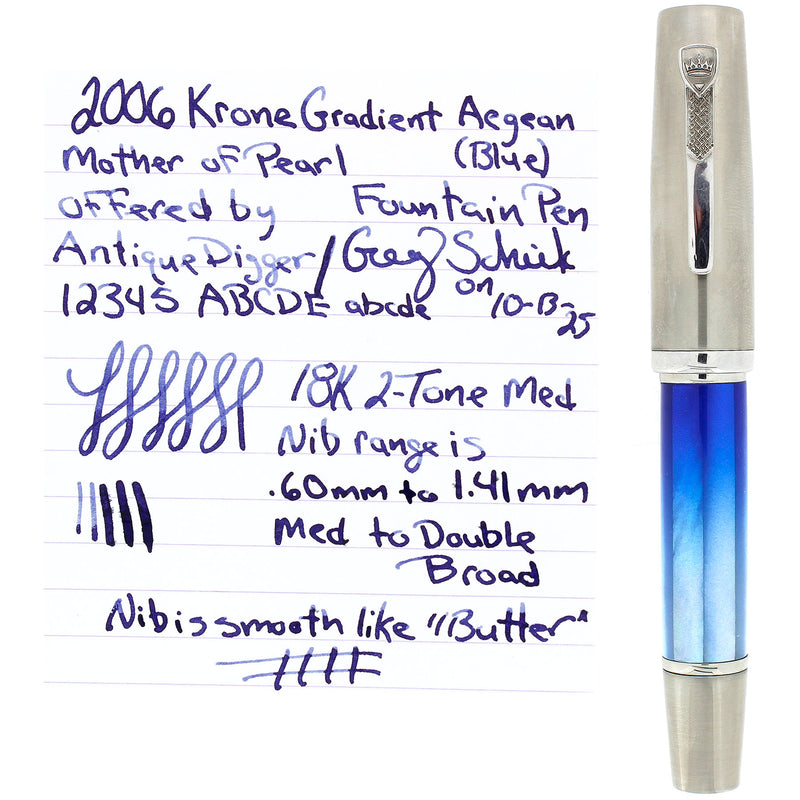 2006 Krone Gradient Aegean
Mother of Pearl (Blue)
offered by Fountain Pen
Antique Digger / Greg Schick
12345 ABCDE abcde on 10-13-25
18K 2-Tone Med
Nib range is
.60mm to 1.41mm
Med to Double
Broad
Nib is smooth like "Butter"